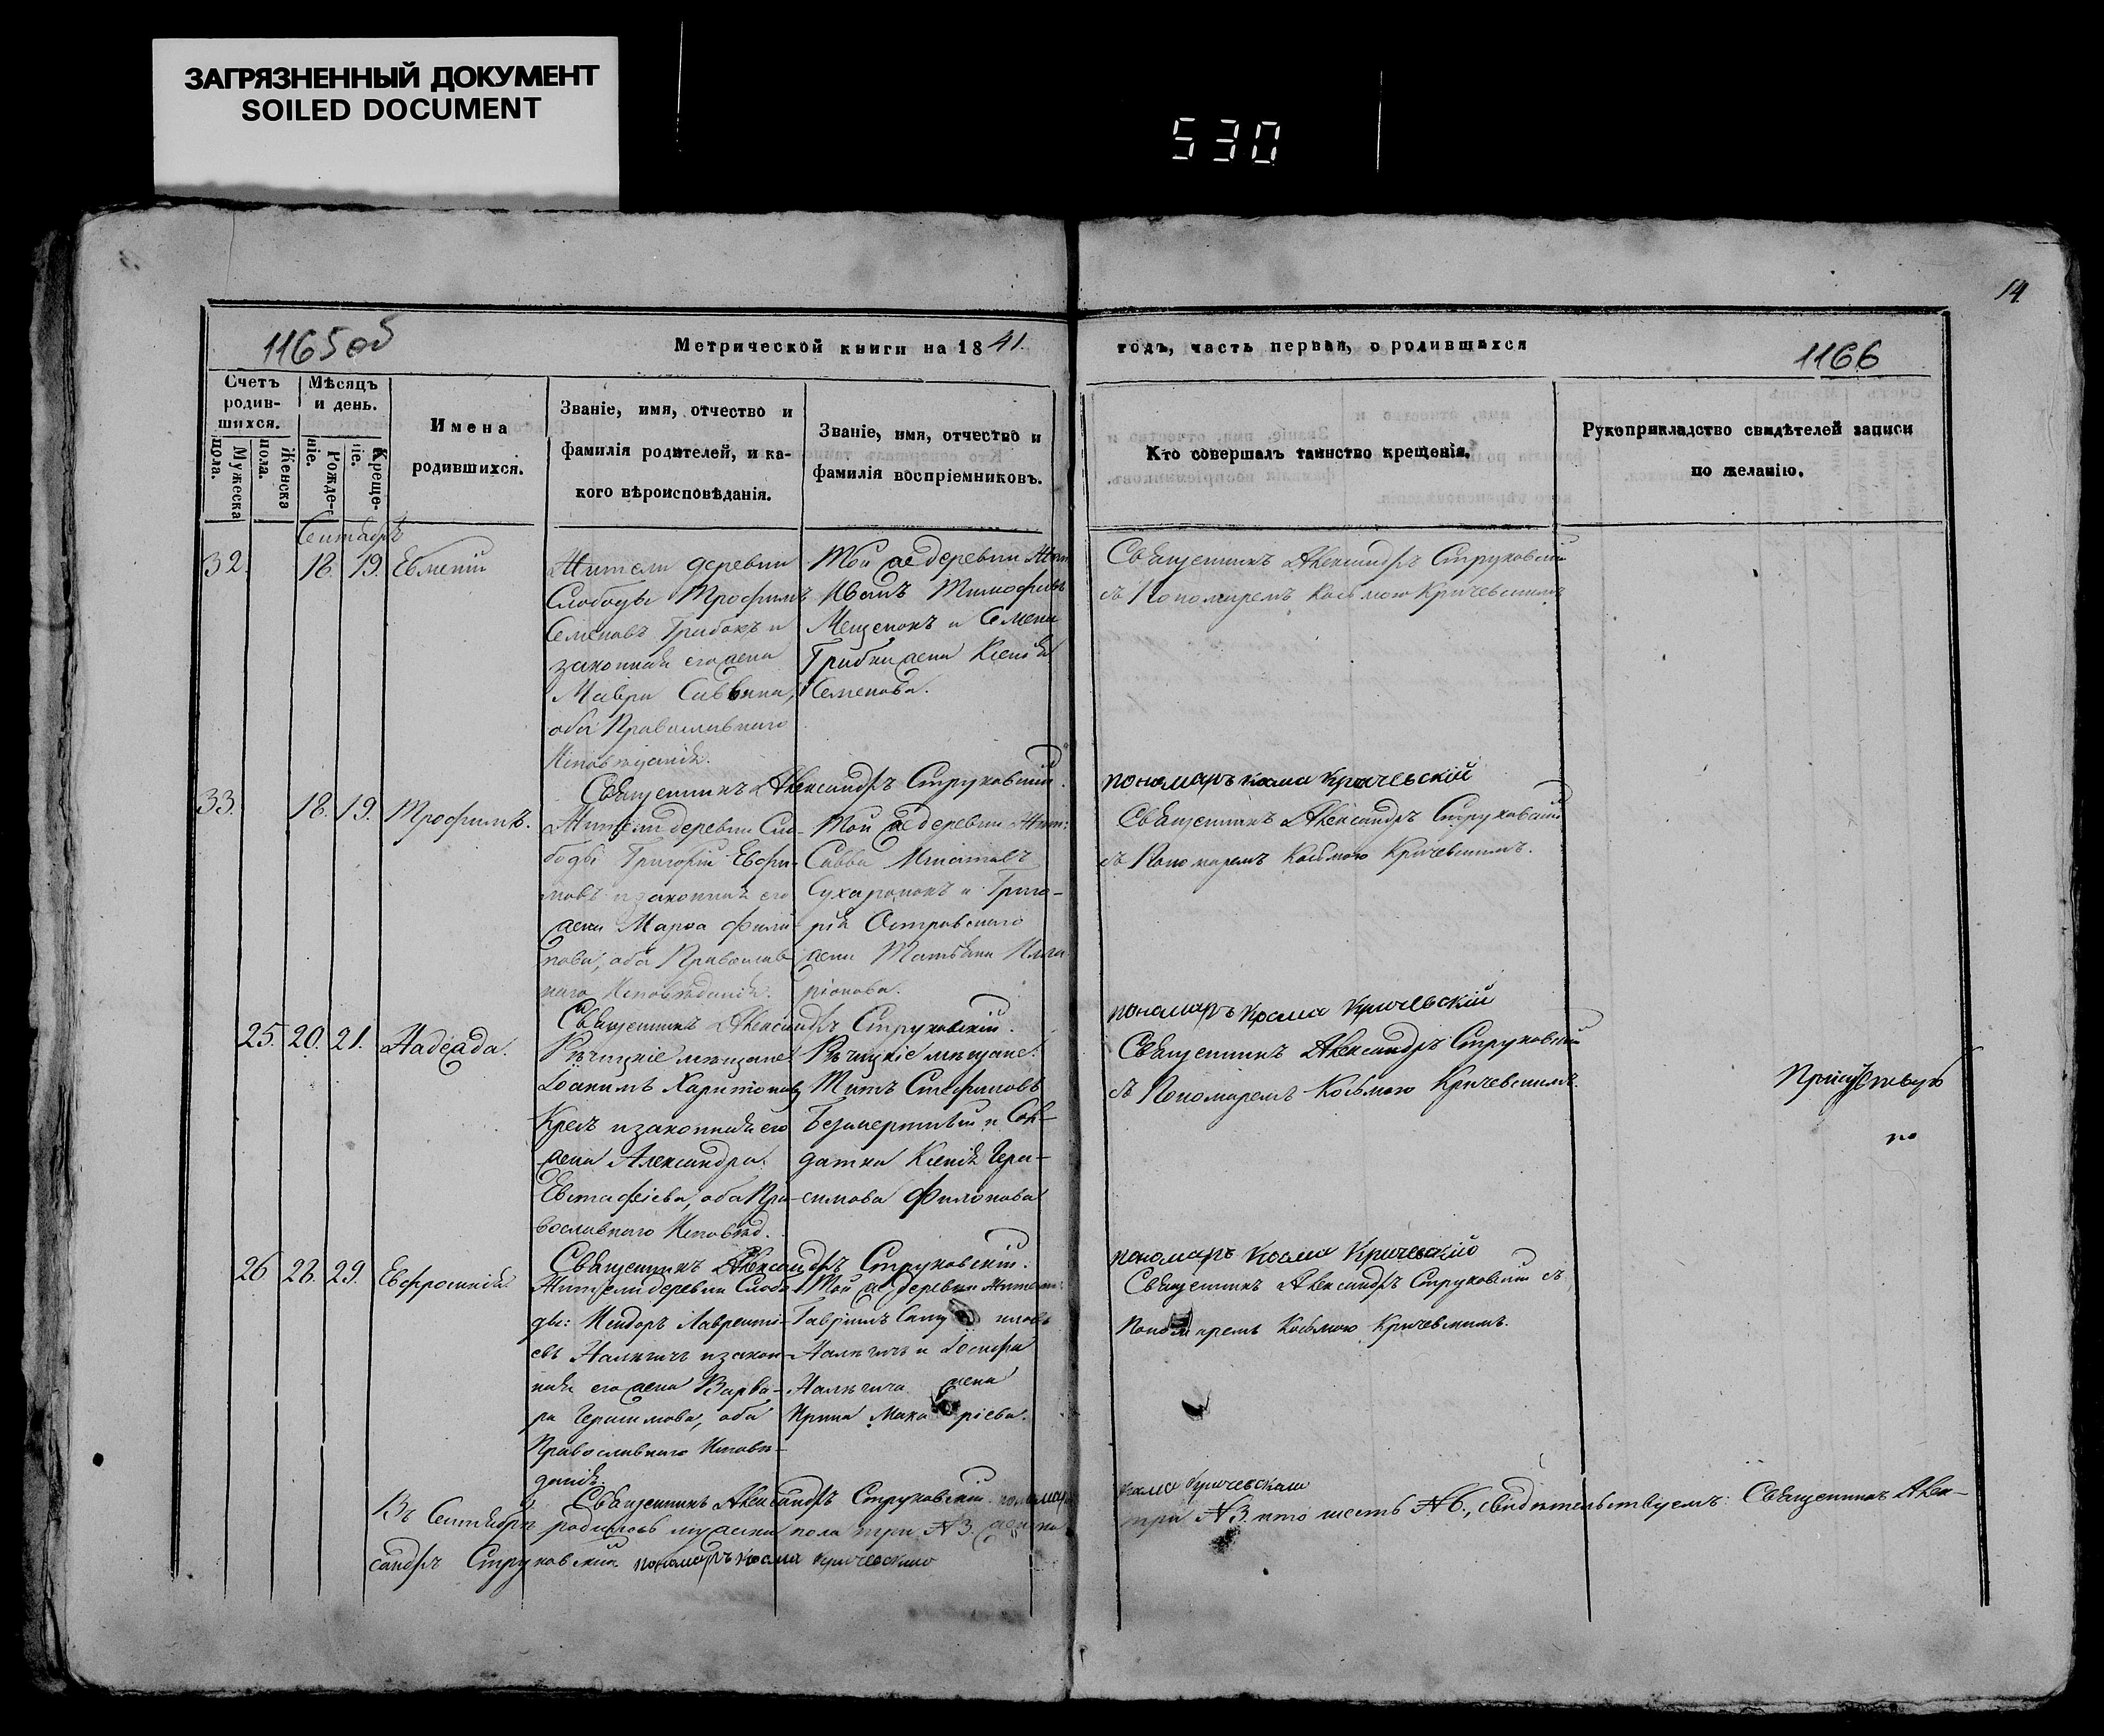 ЗАГРЯЗНЕННЫЙ ДОКУМЕНТ
SOILED DOCUMENT
530
14
1165об
Метрической книги на 1841.
годъ, часть первая, о родившихся
1166
Счетъ родив-шихся.
Мужеска пола.
Женска пола.
Мѣсяцъ и день.
Рожде-ніе.
Креще-ніе.
Имена
родившихся.
Званіе, имя, отчество и
фамилія родителей, и ка-
кого вѣроисповѣданія.
Званіе, имя, отчество и
фамилія воспріемниковъ.
Кто совершалъ таинство крещенія.
Рукоприкладство свидѣтелей записи
по желанію.
Сентябрь
32. 18. 19. Евменій
Жители деревни
Слободы Трофимъ
Семеновъ Грибокъ и
законная его жена
Мавра Саввина,
оба Православнаго
Исповѣданія.
Той же деревни Жит
Иванъ Тимофѣевъ
Мещенокъ и Семена
Грибка жена Ксенія
Семенова.
Священникъ Александръ Струковскій
съ Пономаремъ Косьмою Кричевскимъ
Священникъ Александръ Струковскій.
пономаръ косма Кричевскій
33. 18. 19. Трофимъ.
Жители деревни Сло-
боды Григорій Евфи-
мовъ и законная его
жена Марѳа Фили-
пова, оба Православ
наго Исповѣданія.
Той же деревни Жит:
Савва Игнатовъ
и Григо-
рія Островскаго
жена Татьяна Илла
ріонова.
Священникъ Александръ Струковскій
съ Пономаремъ Косьмою Кричевскимъ.
Священникъ Александръ Струковскій.
пономаръ Косма Кричевскій
25. 20. 21. Надежда.
Рѣчицкіе мѣщане
Іоакимъ Харитоновъ
и законная его
жена Александра
Евстафіева, оба Пра-
вославнаго Исповѣд.
Рѣчицкіе мѣщане:
Титъ Стефановъ
и Сол-
датка Ксенія Гера-
симова Филонова
Священникъ Александръ Струковскій
съ Пономаремъ Косьмою Кричевскимъ.
Священникъ Александръ Струковскій.
пономаръ Косма Кричевскій
26 28. 29. Евфросинія
Жители деревни Слобо
ды: Исидоръ Лавренті-
евъ и закон-
ная его жена Варва-
ра Герасимова, оба
Православнаго Исповѣ-
данія.
Той же деревни Жители:
Гавріилъ
и Іосифа
жена
Ирина Макаріева.
Священникъ Александръ Струковскій съ
Пономаремъ Косьмою Кричевскимъ.
Священникъ Александръ Струковскій пономаръ
косма Кричевскій
Въ Сентябрѣ родилось мужеска пола три №3. женска
три №3. что шесть №6., свидѣтельствуемъ: Священникъ Алек-
сандръ Струковскій пономаръ косма Кричевскій